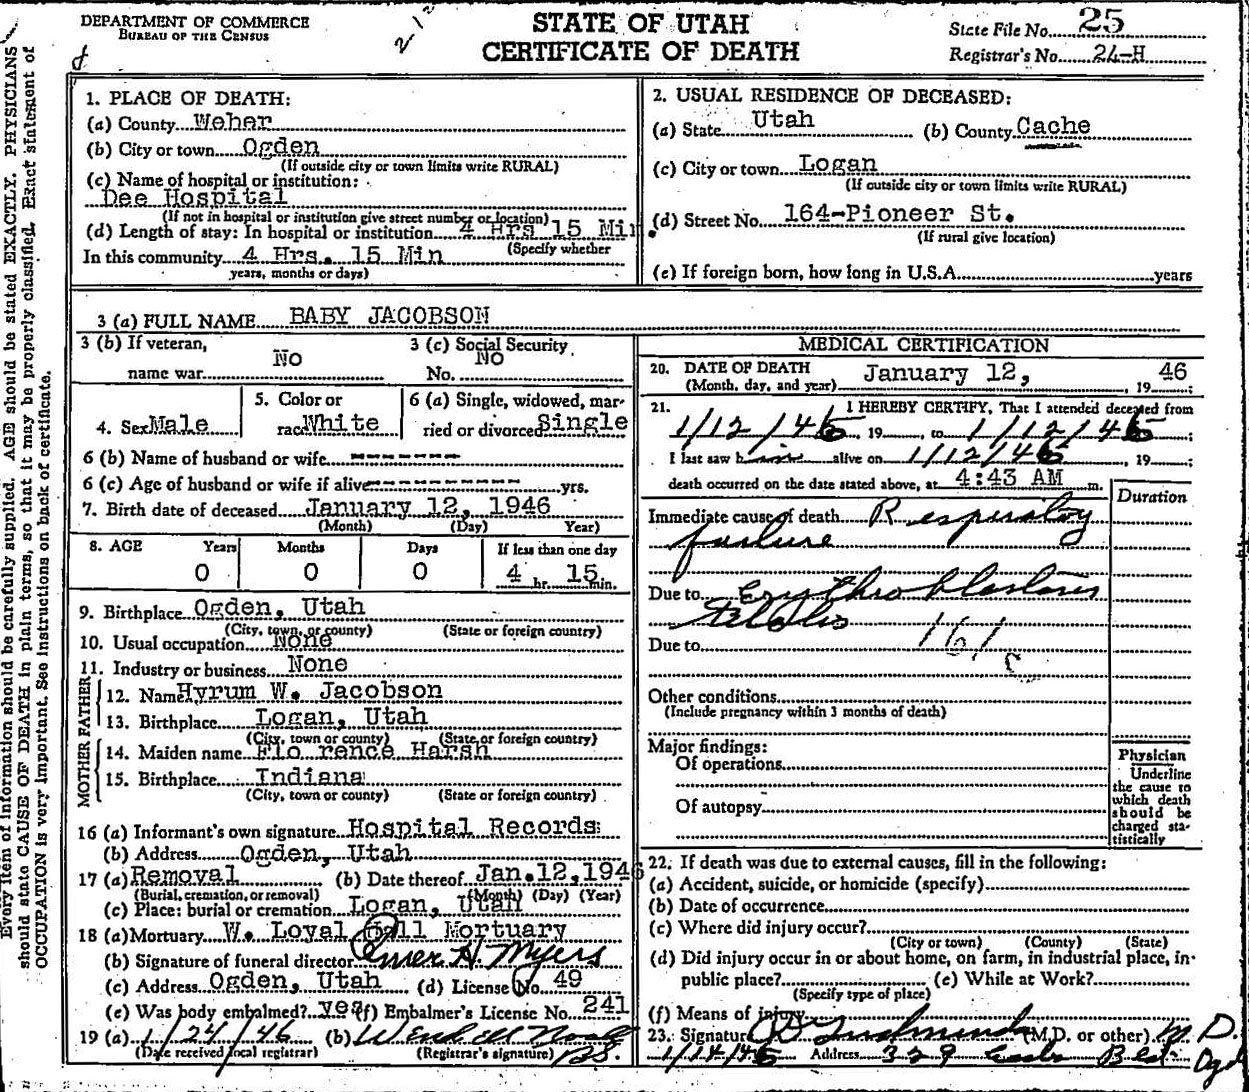 DEPARTMENT OF COMMERCE
BUREAU OF THE CENSUS
STATE OF UTAH
CERTIFICATE OF DEATH
State File No. 25
Registrar's No. 24-H
Every item of information should be carefully supplied. AGE should be stated EXACTLY. PHYSICIANS
should state CAUSE OF DEATH in plain terms, so that it may be properly classified. Exact statement of
OCCUPATION is very important. See instructions on back of certificate.
1. PLACE OF DEATH:
(a) County Weber
(b) City or town Ogden
(If outside city or town limits write RURAL)
(c) Name of hospital or institution:
Dee Hospital
(If not in hospital or institution give street number or location)
(d) Length of stay: In hospital or institution 4 Hrs 15 Min.
(Specify whether
In this community 4 Hrs. 15 Min
years, months or days)
2. USUAL RESIDENCE OF DECEASED:
(a) State Utah (b) County Cache
(c) City or town Logan
(If outside city or town limits write RURAL)
(d) Street No. 164-Pioneer St.
(If rural give location)
(e) If foreign born, how long in U.S.A. years
3 (a) FULL NAME BABY JACOBSON
3 (b) If veteran, name war No
3 (c) Social Security No. No
4. Sex Male
5. Color or race White
6 (a) Single, widowed, married or divorced Single
6 (b) Name of husband or wife -------
6 (c) Age of husband or wife if alive ---------- yrs.
7. Birth date of deceased January 12, 1946
(Month) (Day) Year)
8. AGE Years Months Days If less than one day
0 0 0 4 hr. 15 min.
9. Birthplace Ogden, Utah
(City, town, or county) (State or foreign country)
10. Usual occupation None
11. Industry or business None
FATHER
12. Name Hyrum W. Jacobson
13. Birthplace Logan, Utah
(City, town or county) (State or foreign country)
MOTHER
14. Maiden name Flo rence Harsh
15. Birthplace Indiana
(City, town or county) (State or foreign country)
16 (a) Informant's own signature Hospital Records
(b) Address Ogden, Utah
17 (a) Removal (b) Date thereof Jan.12,1946
(Burial, cremation, or removal) (Month) (Day) (Year)
(c) Place: burial or cremation Logan, Utah
18 (a) Mortuary W. Loyal Hall Mortuary
(b) Signature of funeral director Elmer H. Myers
(c) Address Ogden, Utah (d) License No. 49
(e) Was body embalmed? yes (f) Embalmer's License No. 241
19 (a) 1/24/46 (b) Wendell
(Date received local registrar) (Registrar's signature)
MEDICAL CERTIFICATION
20. DATE OF DEATH
(Month, day, and year) January 12, , 19 46 ;
21. I HEREBY CERTIFY, That I attended deceased from
1/12/46, 19 , to 1/12/46 ;
I last saw him alive on 1/12/46 , 19 ;
death occurred on the date stated above, at 4:43 AM m.
Duration
Immediate cause of death Respiratory
failure
Due to Erythroblastosis
fetalis
Due to 161 c
Other conditions
(Include pregnancy within 3 months of death)
Major findings:
Of operations
Of autopsy
Physician
Underline
the cause to
which death
should be
charged sta-
tistically
22. If death was due to external causes, fill in the following:
(a) Accident, suicide, or homicide (specify)
(b) Date of occurrence
(c) Where did injury occur?
(City or town) (County) (State)
(d) Did injury occur in or about home, on farm, in industrial place, in
public place? (e) While at Work?
(Specify type of place)
(f) Means of injury
23. Signature (M.D. or other) M D.
1/14/46 Address 329